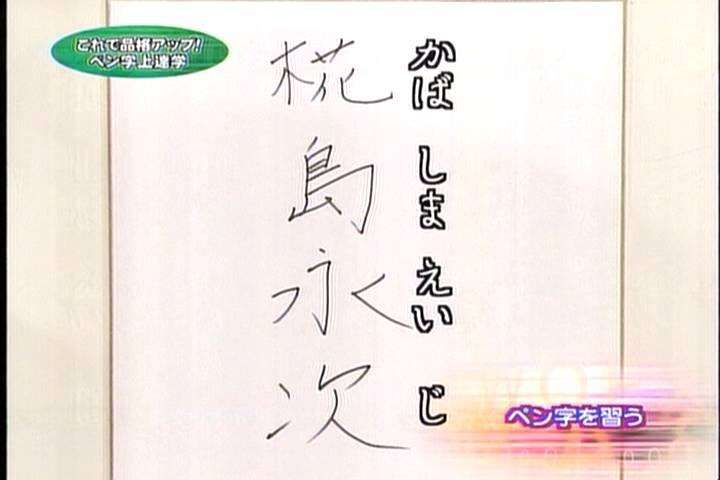 これで品格アップ!
ペン字上達学
椛島永次
かばしまえいじ
ペン字を習う